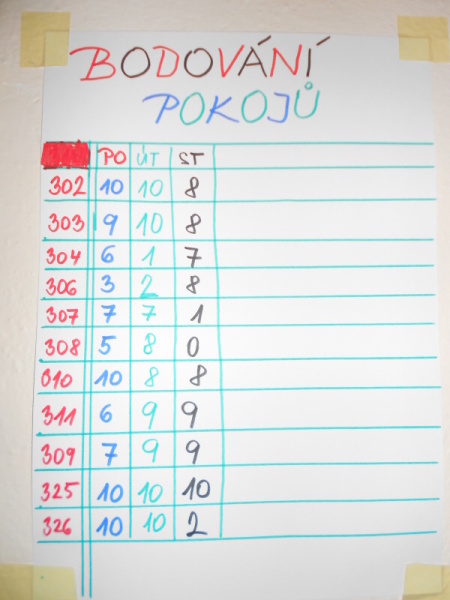 BODOVÁNÍ
POKOJŮ
PO ÚT ST
302 10 10 8
303 9 10 8
304 6 1 7
306 3 2 8
307 7 7 1
308 5 8 0
010 10 8 8
311 6 9 9
309 7 9 9
325 10 10 10
326 10 10 2